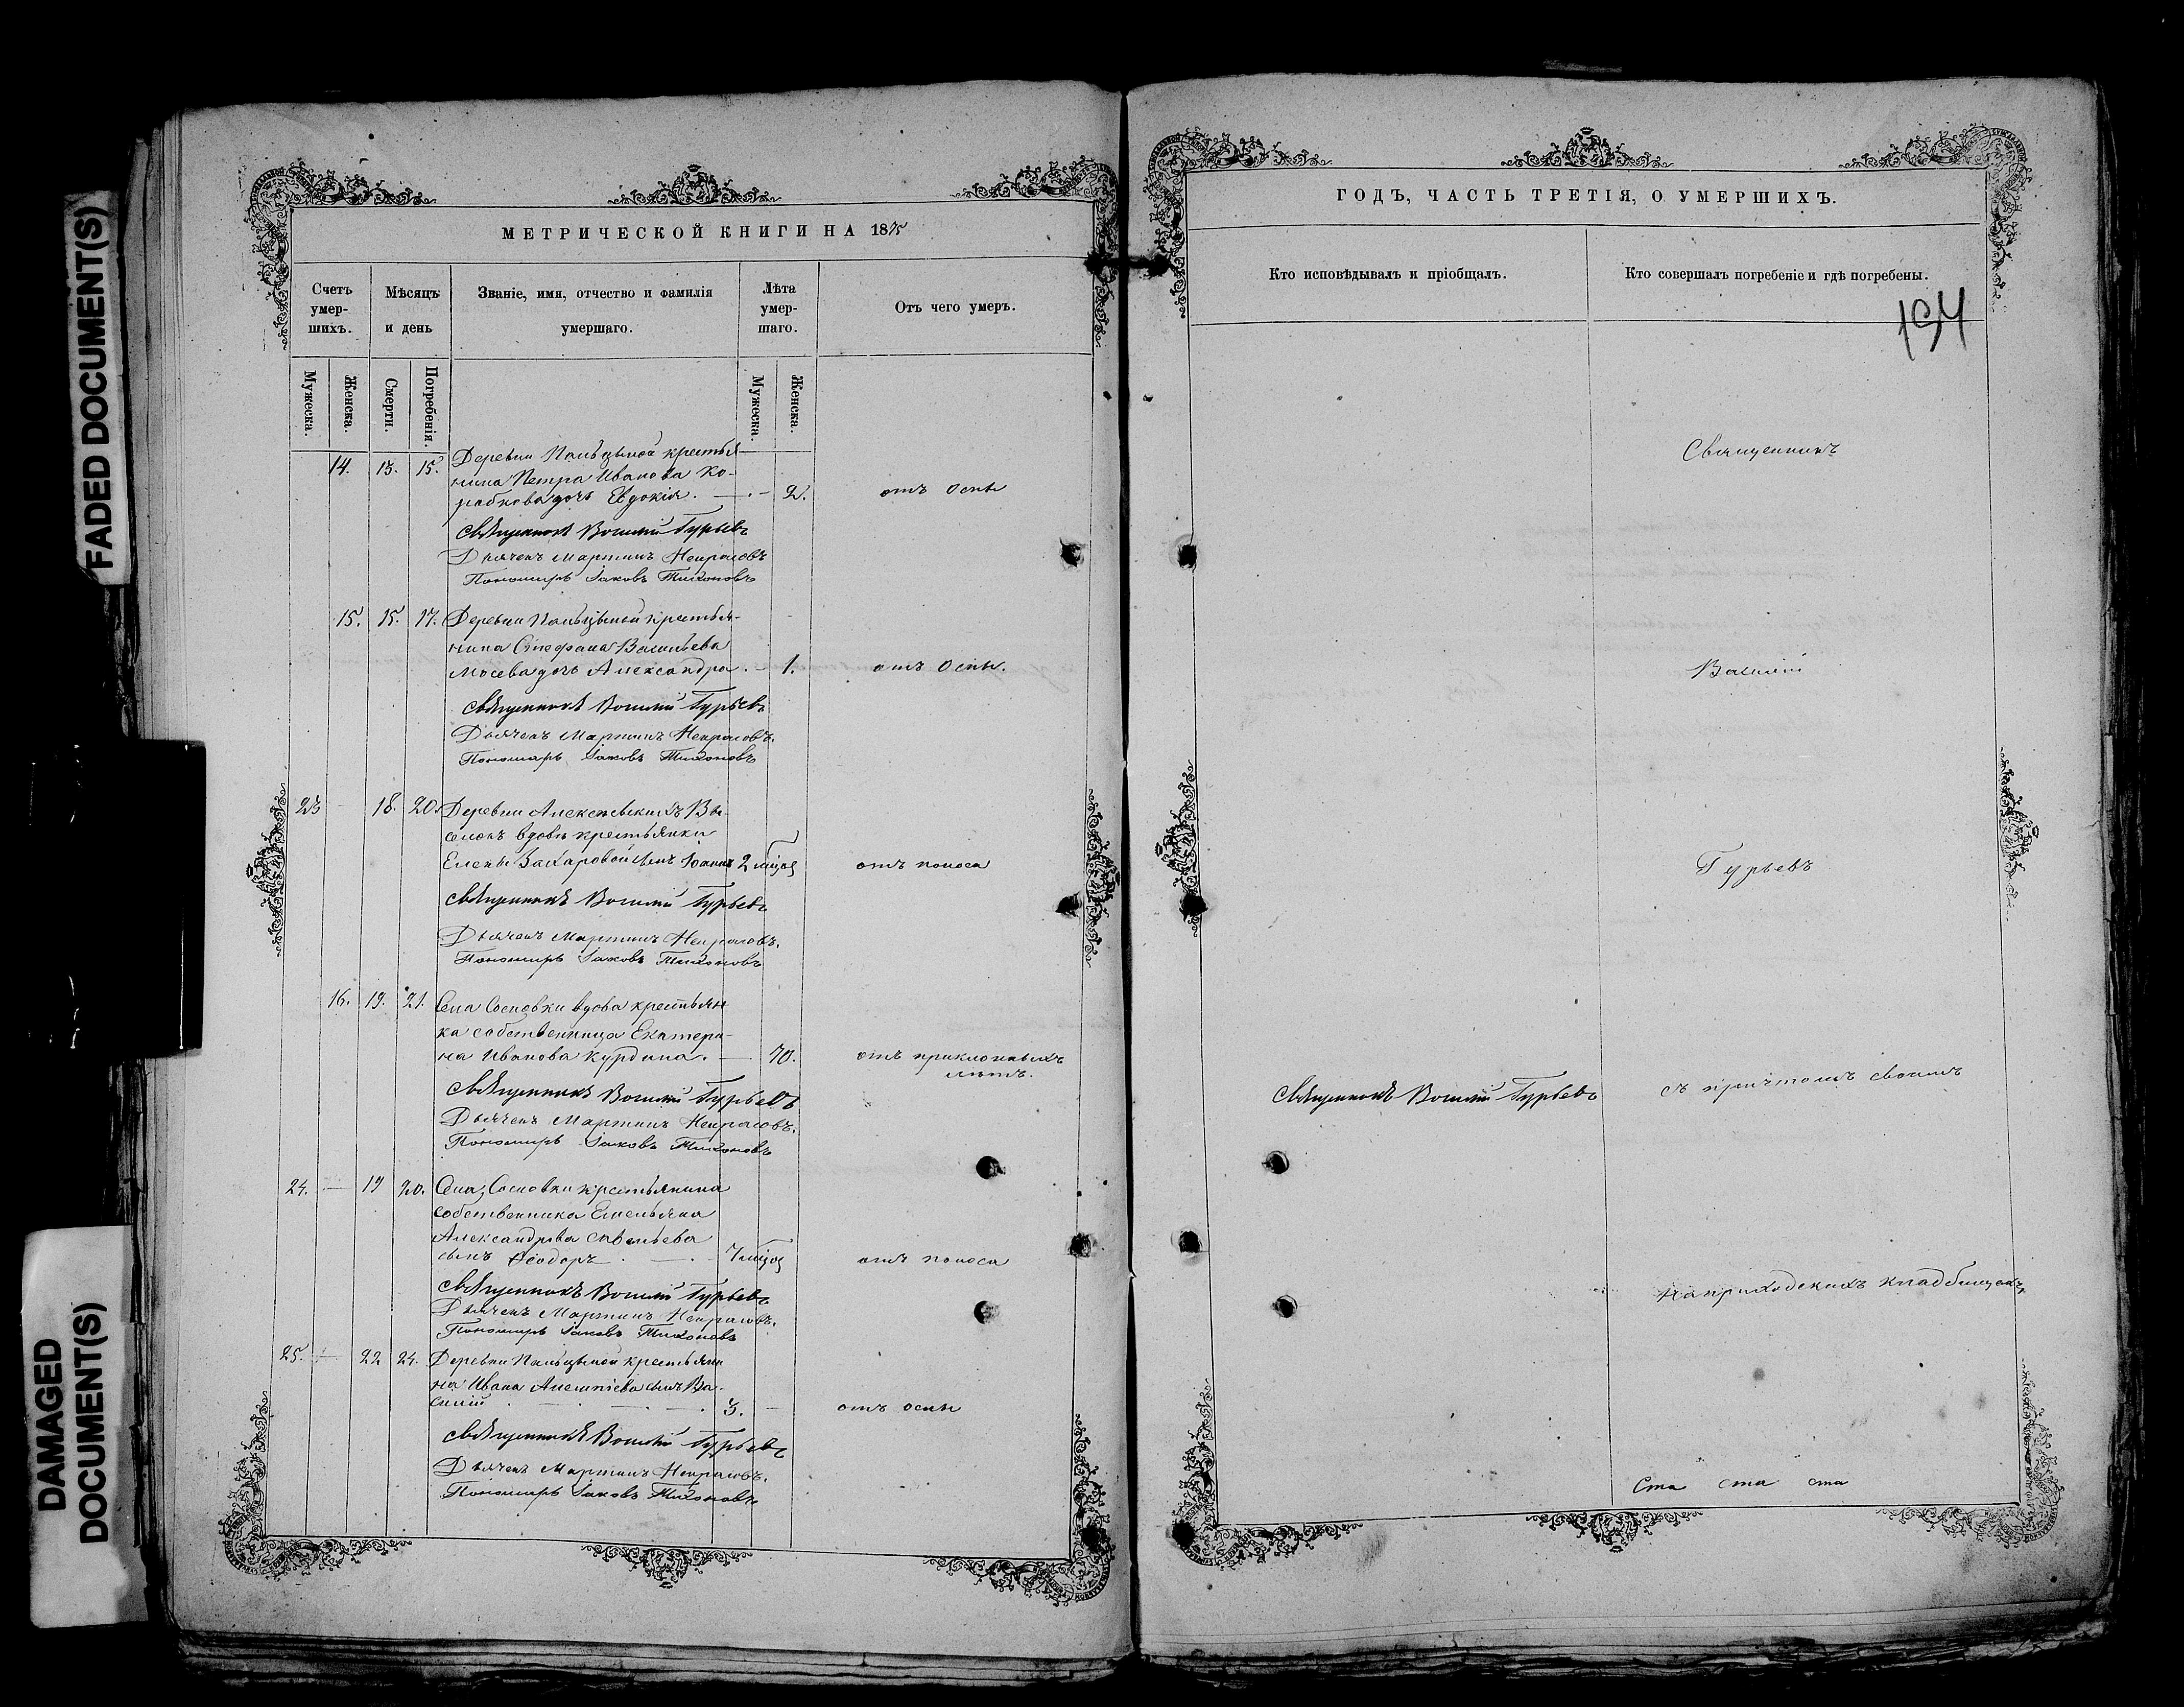 FADED DOCUMENT(S)
DAMAGED
DOCUMENT(S)
МЕТРИЧЕСКОЙ КНИГИ НА 1875
Счетъ умер-шихъ.
Мѣсяцъ и день
Званіе, имя, отчество и фамилія умершаго.
Лѣта умер-шаго.
Отъ чего умеръ.
Мужеска.
Женска.
Смерти.
Погребенія.
Мужеска.
Женска.
14. 13. 15. Деревни Пальцыной крестья
нина Петра Иванова Ко-
рабкова дочь Евдокія. — 2. отъ Оспы
Священникъ Василій Гурьевъ
Дьячекъ Мартинъ Некрасовъ
Пономарь Іаковъ Тихоновъ
15. 15. 17. Деревни Пальцыной крестья-
нина Стефана Васильева
Мосева дочь Александра. — 1. отъ Оспы.
Священникъ Василій Гурьевъ
Дьячекъ Мартинъ Некрасовъ.
Пономарь Іаковъ Тихоновъ
23 18. 20. Деревни Алексѣевскихъ Вы-
селокъ вдовы крестьянки
Елены Захаровой сынъ Іоаннъ 2 мѣця отъ поноса
Священникъ Василій Гурьевъ
Дьячекъ Мартинъ Некрасовъ.
Пономарь Іаковъ Тихоновъ
16. 19. 21. Села Сосновки вдова крестьян
ка собственница Екатери-
на Иванова Курдина. — 70. отъ приклонныхъ
лѣтъ.
Священникъ Василій Гурьевъ
Дьячекъ Мартинъ Некрасовъ.
Пономарь Іаковъ Тихоновъ
24. — 19 20. Села Сосновки крестьянина
собственника Емельяна
Александрова Савельева
сынъ Ѳеодоръ — 7 мѣця отъ поноса
Священникъ Василій Гурьевъ
Дьячекъ Мартинъ Некрасовъ.
Пономарь Іаковъ Тихоновъ
25. — 22 24. Деревни Пальцыной крестьяни
на Ивана сынъ Ва-
силій — 3. — отъ оспы
Священникъ Василій Гурьевъ
Дьячекъ Мартинъ Некрасовъ.
Пономарь Іаковъ Тихоновъ
ГОДЪ, ЧАСТЬ ТРЕТІЯ, О УМЕРШИХЪ.
Кто исповѣдывалъ и пріобщалъ.
Кто совершалъ погребеніе и гдѣ погребены.
194
Священникъ
Василій
Гурьевъ
Священникъ Василій Гурьевъ
съ причтомъ своимъ
на приходскихъ кладбищахъ
Ста ста ста